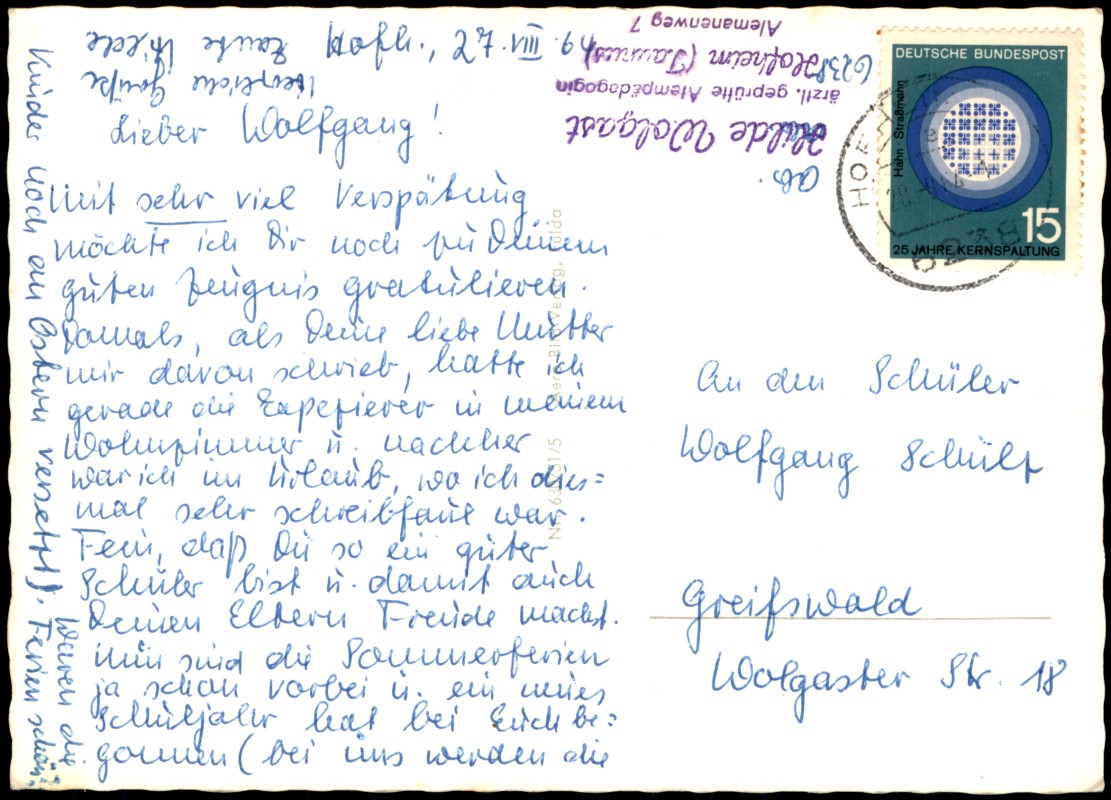 Lieber Wolfgang!
Mit sehr viel Verspätung
möchte ich Dir noch zu Deinem
guten Zeugnis gratulieren.
Damals, als Deine liebe Mutter
mir davon schrieb, hatte ich
gerade die Tapezierer in meinem
Wohnzimmer u. nachher
war ich im Urlaub, wo ich dies=
mal sehr schreibfaul war.
Fein, daß Du so ein guter
Schüler bist u. damit auch
Deinen Eltern Freude machst.
Nun sind die Sommerferien
ja schon vorbei u. ein neues
Schuljahr hat bei Euch be=
gonnen (bei uns werden die
Kinder noch an Ostern versetzt). Waren die Ferien schön?
Herzliche Grüße
Tante Hilde
Abs.
Hilde Wolgast
ärztl. geprüfte Atempädagogin
(6238) Hofheim (Taunus)
Alemannenweg 7
DEUTSCHE BUNDESPOST
Hahn · Straßmann
15
25 JAHRE KERNSPALTUNG
6238
An den Schüler
Wolfgang Schülz
Greifswald
Wolgaster Str. 18